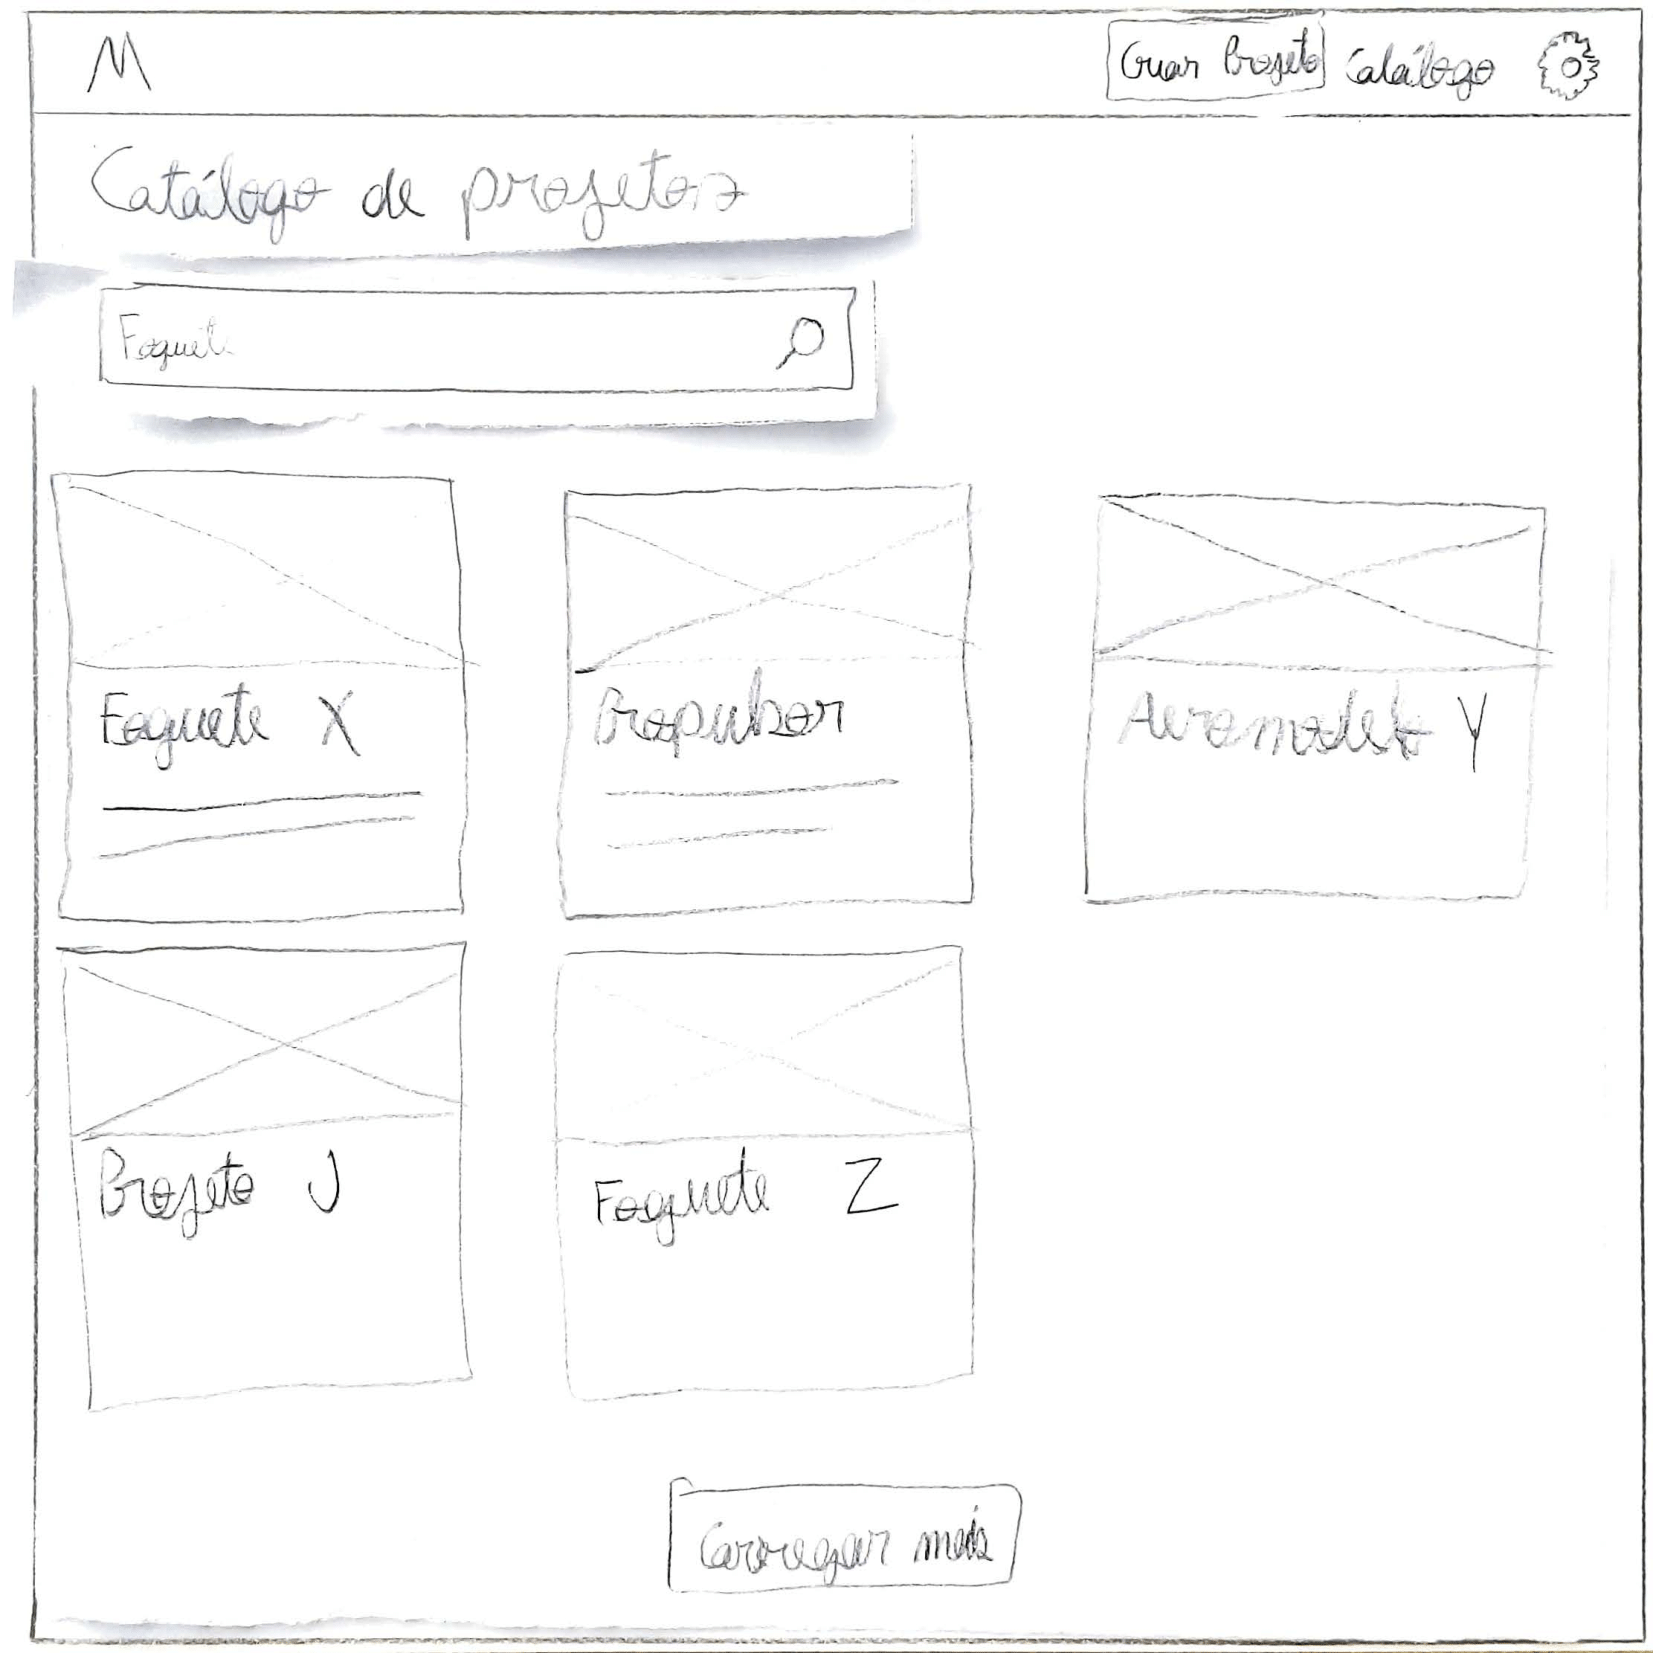 M
Criar Projeto Catálogo
Catálogo de projetos
Foguete
Foguete X
Propulsor
Aeromodelo Y
Projeto J
Foguete Z
Carregar mais